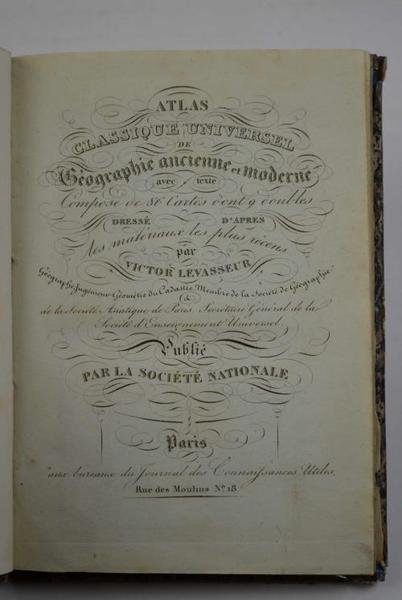 ATLAS
CLASSIQUE UNIVERSEL
DE
Géographie ancienne et moderne
avec texte
Composé de 86 Cartes dont 9 doubles
DRESSÉ D'APRES
les matériaux les plus récens
par
VICTOR LEVASSEUR,
Géographe Ingénieur Géomètre du Cadastre, Membre de la Société de Géographie
&
de la Société Asiatique de Paris, Secrétaire Général de la
Société d'Enseignement Universel.
Publié
PAR LA SOCIÉTÉ NATIONALE
à
Paris
aux bureaux du Journal des Connaissances Utiles,
Rue des Moulins No. 18.